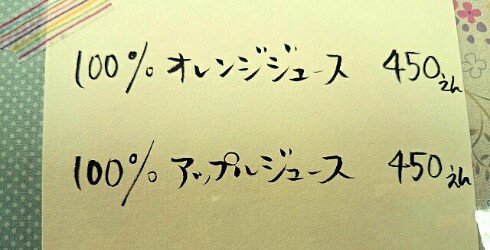 100% オレンジジュース 450えん
100% アップルジュース 450えん